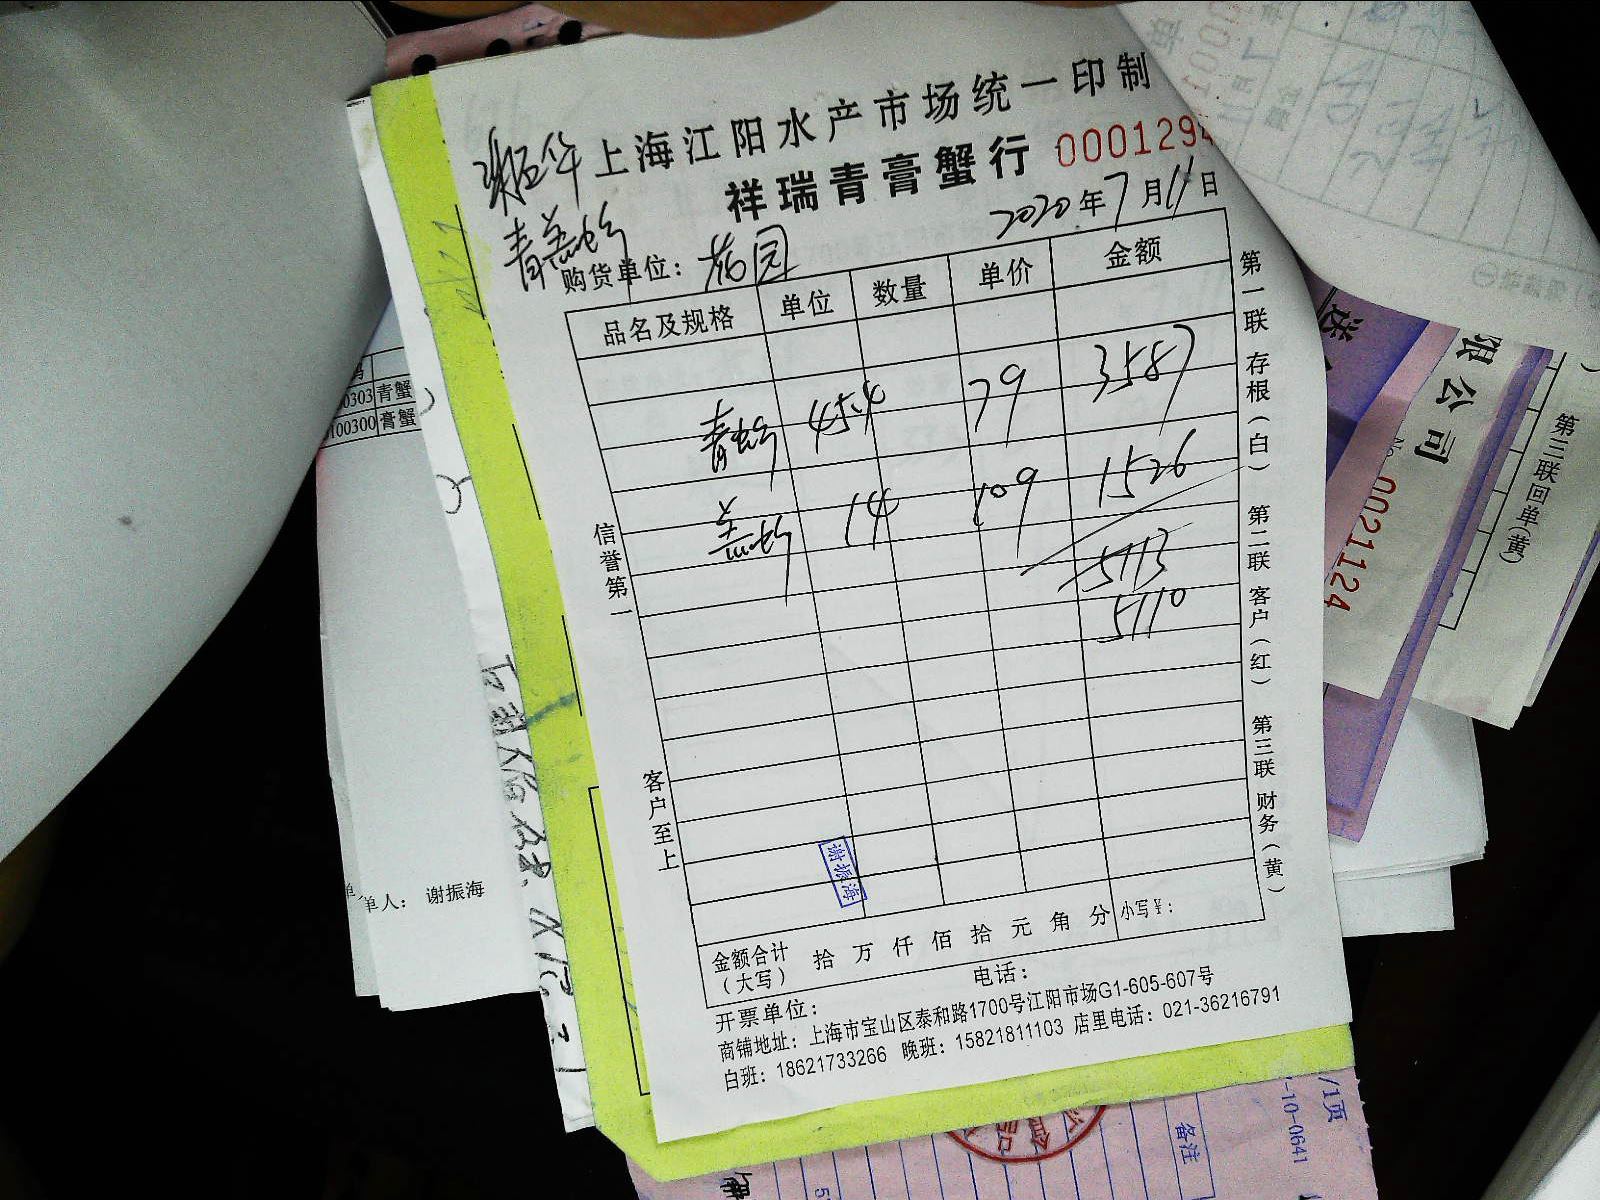 上海江阳水产市场统一印制
祥瑞青膏蟹行 000129
2020年7月11日
购货单位：花园
品名及规格 单位 数量 单价 金额
青 45.4 79 3587
14 109 1526
5113
5110
信誉第一
客户至上
第一联 存根（白） 第二联 客户（红） 第三联 财务（黄）
谢振海
金额合计（大写） 拾 万 仟 佰 拾 元 角 分 小写¥：
开票单位： 电话：
商铺地址：上海市宝山区泰和路1700号江阳市场G1-605-607号
白班：18621733266 晚班：15821811103 店里电话：021-36216791
0303 青蟹
100300 膏蟹
单人： 谢振海
限公司
No 0021124
第三联回单(黄)
/1页
-10-0641
备注